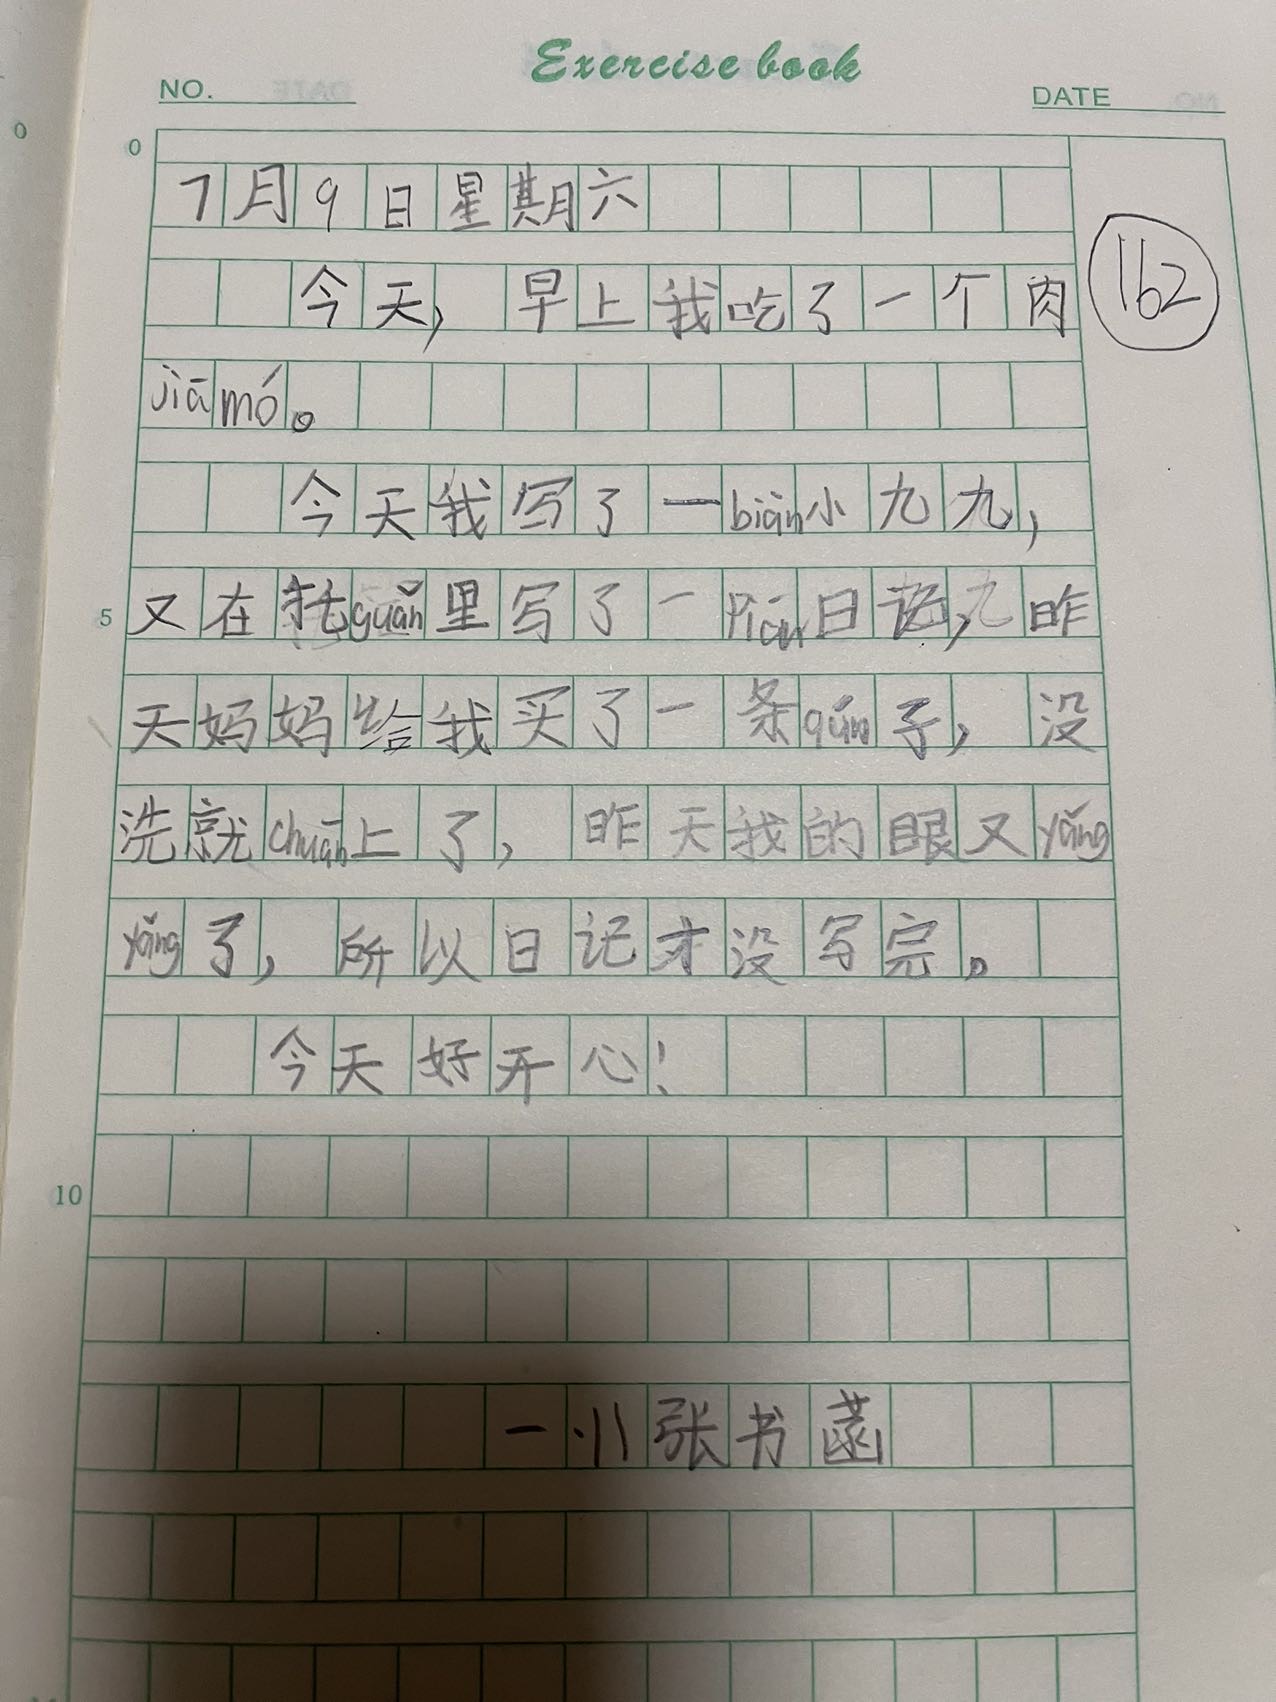 Exercise book
NO. DATE
0
7月9日星期六
今天，早上我吃了一个肉
162
jiāmó。
今天我写了一biàn小九九，
5
又在托guǎn里写了一piān日记，昨
天妈妈给我买了一条qún子，没
洗就chuān上了，昨天我的眼又yǎng
yǎng了，所以日记才没写完。
今天好开心！
10
张书菡